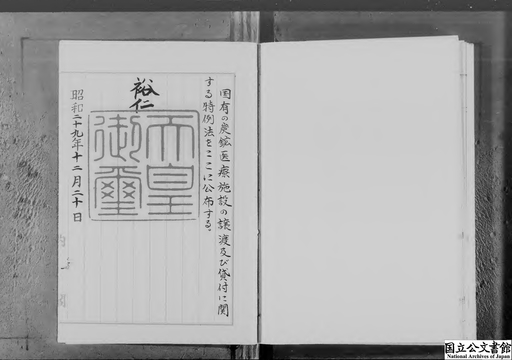 国有の炭鉱医療施設の譲渡及び貸付に関
する特例法をここに公布する。
裕仁
天皇
御璽
昭和二十九年十二月二十日
国立公文書館
National Archives of Japan